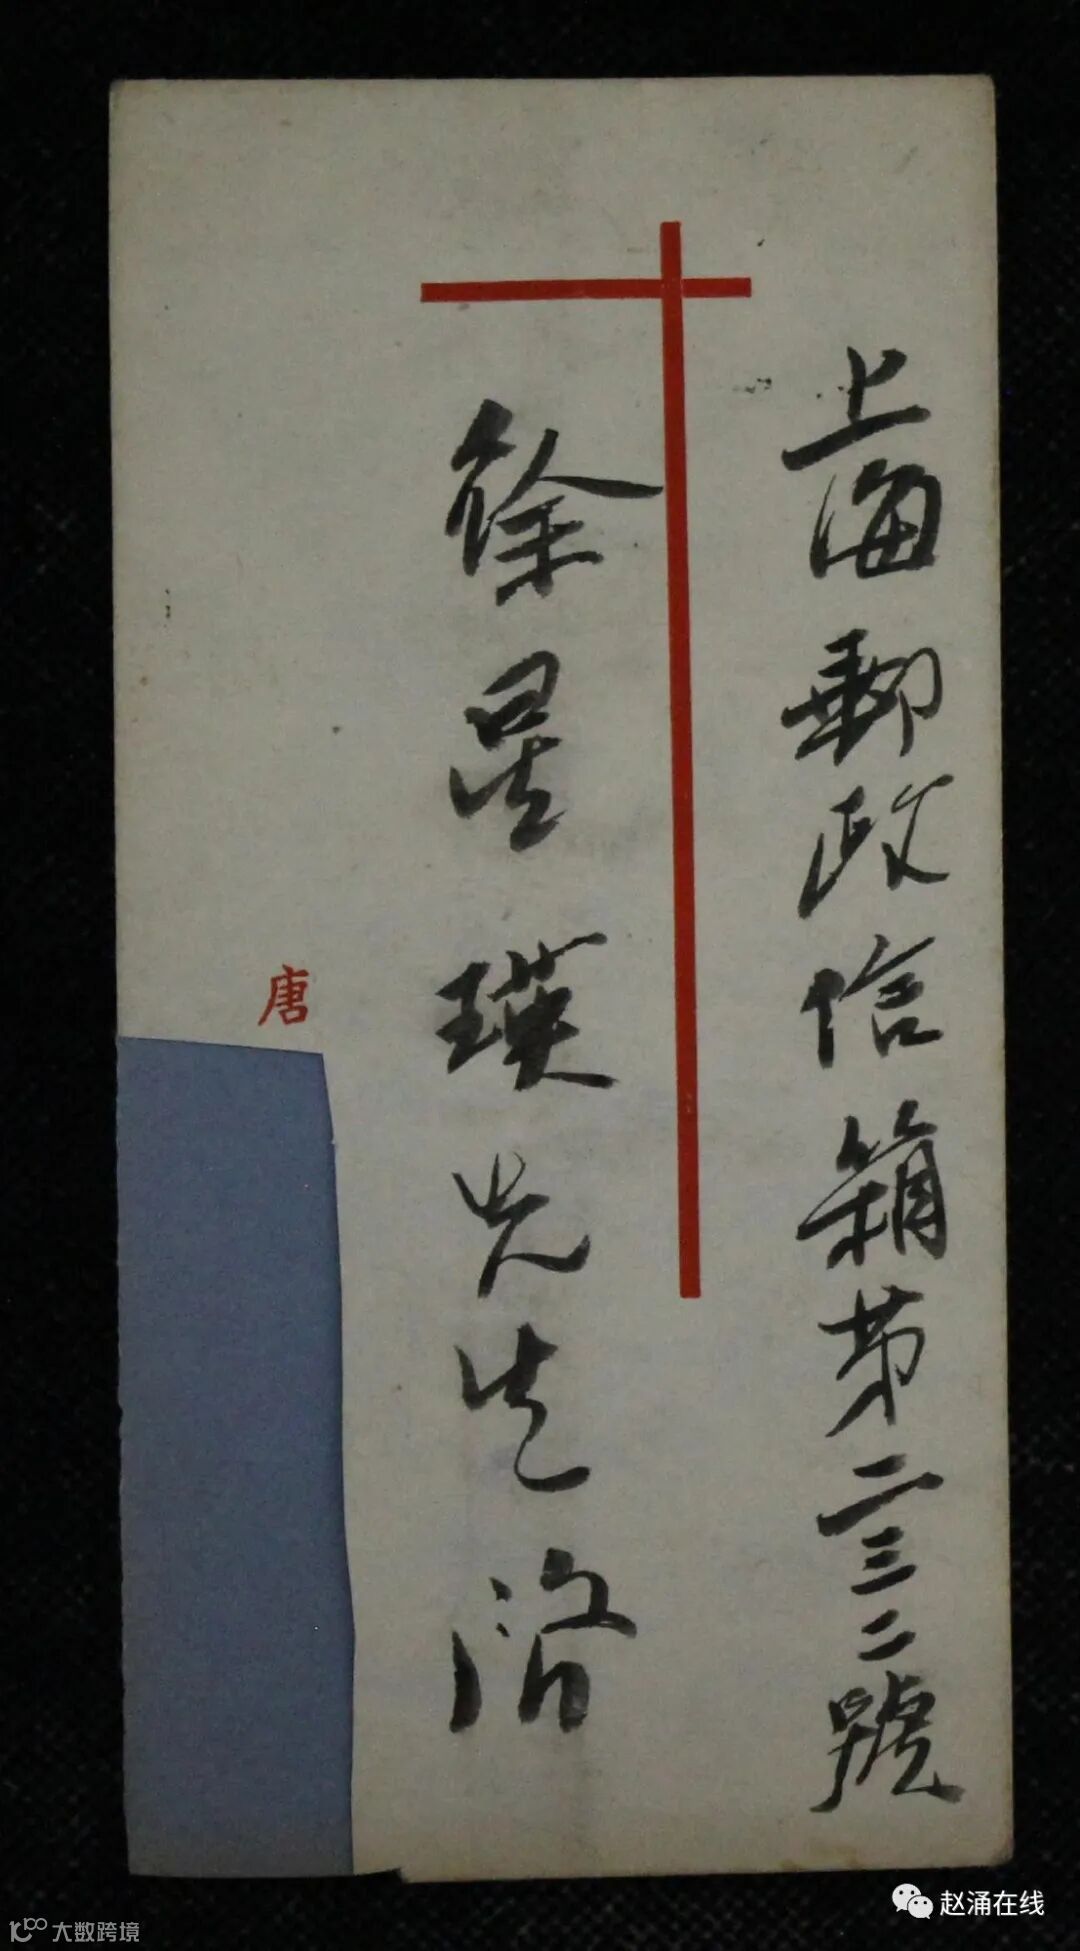 上海郵政信箱第二三二號
徐星瑛先生
唐
赵涌在线
大数跨境